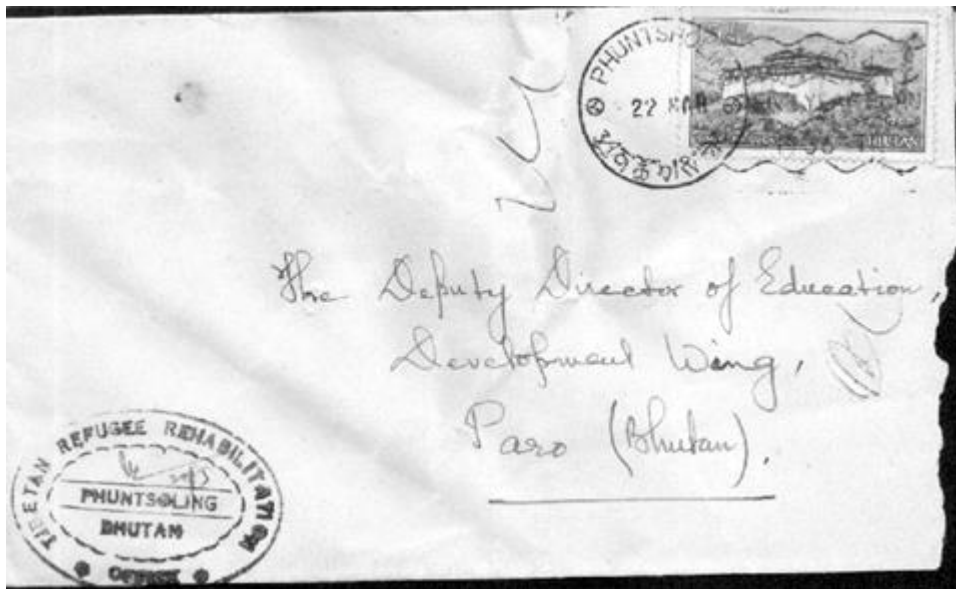 22 MAR
BHUTAN
The Deputy Director of Education,
Development Wing,
Paro (Bhutan).
TIBETAN REFUGEE REHABILITATION
PHUNTSOLING
BHUTAN
OFFICE